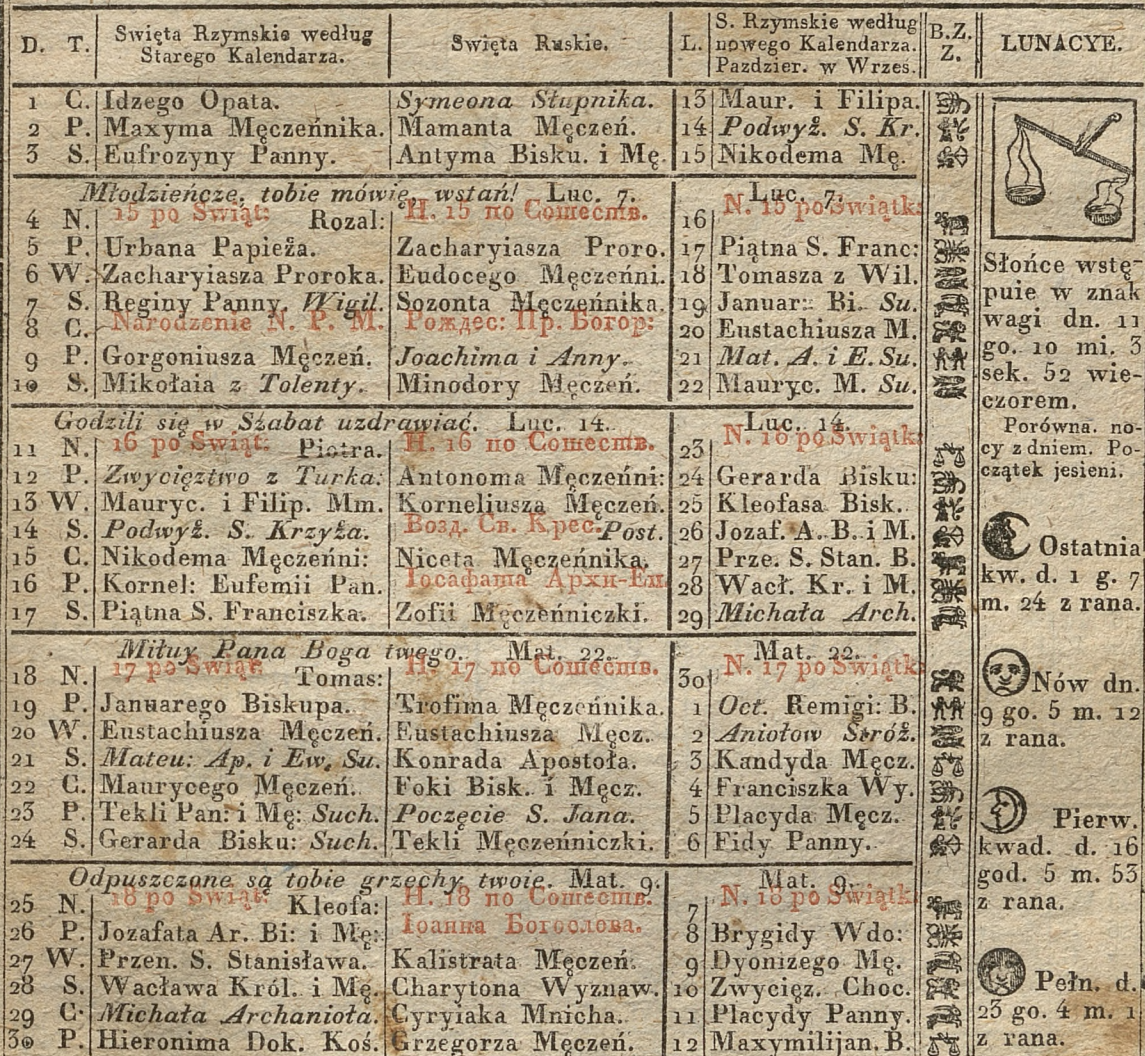 D. T. Swięta Rzymskie według Starego Kalendarza. Swięta Ruskie. L. S. Rzymskie według nowego Kalendarza. Pazdzier. w Wrzes. B.Z.Z. LUNACYE.
1 C. Idzego Opata. Symeona Słupnika. 13 Maur. i Filipa.
2 P. Maxyma Męczeńnika. Mamanta Męczeń. 14 Podwyż. S. Kr.
3 S. Eufrozyny Panny. Antyma Bisku. i Mę. 15 Nikodema Mę.
Młodzieńcze, tobie mówię, wstań! Luc. 7. Luc. 7.
4 N. 15 po Swiąt: Rozal: Н. 15 по Сошеств. 16 N. 15 po Swiątk:
5 P. Urbana Papieża. Zacharyiasza Proro. 17 Piątna S. Franc:
6 W. Zacharyiasza Proroka. Eudocego Męczeńni. 18 Tomasza z Wil.
7 S. Reginy Panny. Wigil. Sozonta Męczeńnika. 19 Januar: Bi. Su.
8 C. Narodzenie N. P. M. Рождес: Пр. Богор: 20 Eustachiusza M.
9 P. Gorgoniusza Męczeń. Joachima i Anny. 21 Mat. A. i E. Su.
10 S. Mikołaia z Tolenty. Minodory Męczeń. 22 Mauryc. M. Su.
Godzili się w Szabat uzdrawiać. Luc. 14. Luc. 14.
11 N. 16 po Swiąt: Piotra. Н. 16 по Сошеств. 23 N. 16 po Swiątk:
12 P. Zwycięztwo z Turka: Antonoma Męczeńni: 24 Gerarda Bisku:
13 W. Mauryc. i Filip. Mm. Korneliusza Męczeń. 25 Kleofasa Bisk.
14 S. Podwyż. S. Krzyża. Возд. Св. Крес. Post. 26 Jozaf. A. B. i M.
15 C. Nikodema Męczeńni: Niceta Męczeńnika. 27 Prze. S. Stan. B.
16 P. Kornel: Eufemii Pan. Іосафата Архи-Еп. 28 Wacł. Kr. i M.
17 S. Piątna S. Franciszka. Zofii Męczeńniczki. 29 Michała Arch.
Miłuy Pana Boga twego. Mat. 22. Mat. 22.
18 N. 17 po Swiąt: Tomas: Н. 17 по Сошеств. 30 N. 17 po Swiątk:
19 P. Januarego Biskupa. Trofima Męczeńnika. 1 Oct. Remigi: B.
20 W. Eustachiusza Męczeń. Eustachiusza Męcz. 2 Aniołow Stróż.
21 S. Mateu: Ap. i Ew. Su. Konrada Apostoła. 3 Kandyda Męcz.
22 C. Maurycego Męczeń. Foki Bisk. i Męcz. 4 Franciszka Wy.
23 P. Tekli Pan: i Mę: Such. Poczęcie S. Jana. 5 Placyda Męcz.
24 S. Gerarda Bisku: Such. Tekli Męczeńniczki. 6 Fidy Panny.
Odpuszczone są tobie grzechy twoie. Mat. 9. Mat. 9.
25 N. 18 po Swiąt: Kleofa: Н. 18 по Сошеств. 7 N. 18 po Swiątk:
26 P. Jozafata Ar. Bi: i Mę: Іоанна Богослова. 8 Brygidy Wdo:
27 W. Przen. S. Stanisława. Kalistrata Męczeń. 9 Dyonizego Mę.
28 S. Wacława Król. i Mę. Charytona Wyznaw. 10 Zwycięz. Choc.
29 C. Michała Archanioła. Cyryiaka Mnicha. 11 Placydy Panny.
30 P. Hieronima Dok. Koś. Grzegorza Męczeń. 12 Maxymilijan. B.
Słońce wstę-
puie w znak
wagi dn. 11
go. 10 mi. 3
sek. 52 wie-
czorem.
Porówna. no-
cy z dniem. Po-
czątek jesieni.
Ostatnia
kw. d. 1 g. 7
m. 24 z rana.
Nów dn.
9 go. 5 m. 12
z rana.
Pierw.
kwad. d. 16
god. 5 m. 53
z rana.
Pełn. d.
23 go. 4 m. 1
z rana.